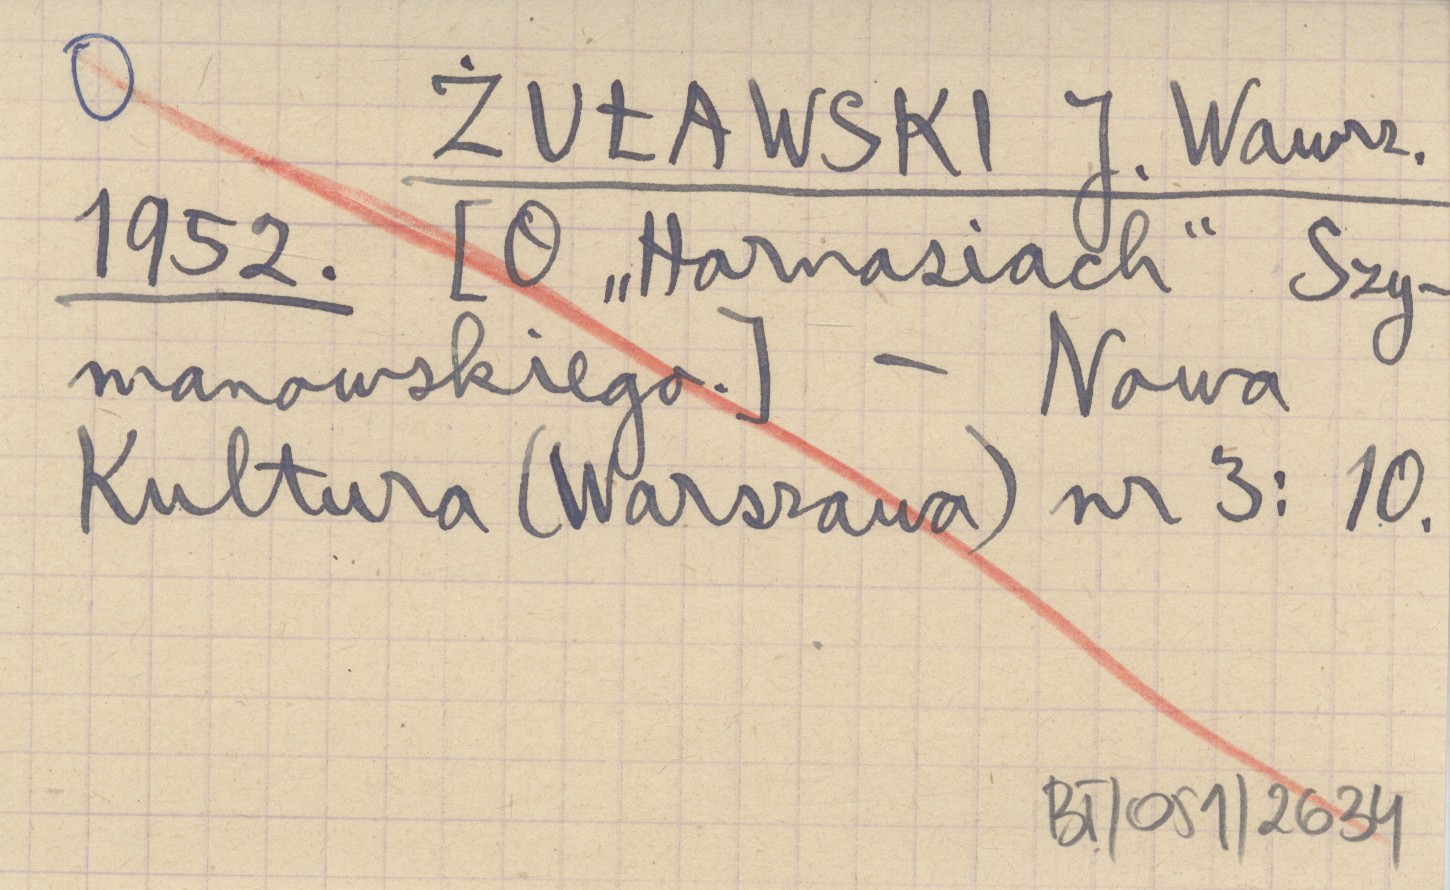 O
ŻUŁAWSKI J. Wawrz.
1952. [O „Harnasiach“ Szy-
manowskiego.] – Nowa
Kultura (Warszawa) nr 3: 10.
BT/OS1/2634